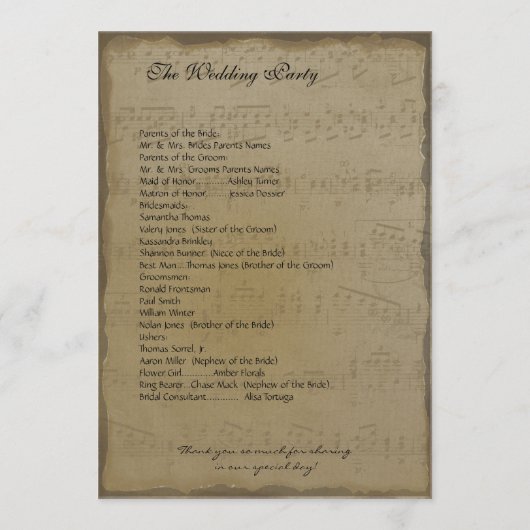 The Wedding Party
Parents of the Bride:
Mr. & Mrs. Brides Parents Names
Parents of the Groom:
Mr. & Mrs. Grooms Parents Names
Maid of Honor............Ashley Turner
Matron of Honor.........Jessica Dossier
Bridesmaids:
Samantha Thomas
Valery Jones (Sister of the Groom)
Kassandra Brinkley
Shannon Bunner (Niece of the Bride)
Best Man....Thomas Jones (Brother of the Groom)
Groomsmen:
Ronald Frontsman
Paul Smith
William Winter
Nolan Jones (Brother of the Bride)
Ushers:
Thomas Sorrel, Jr.
Aaron Miller (Nephew of the Bride)
Flower Girl...........Amber Florals
Ring Bearer...Chase Mack (Nephew of the Bride)
Bridal Consultant............ Alisa Tortuga
Thank you so much for sharing
in our special day!